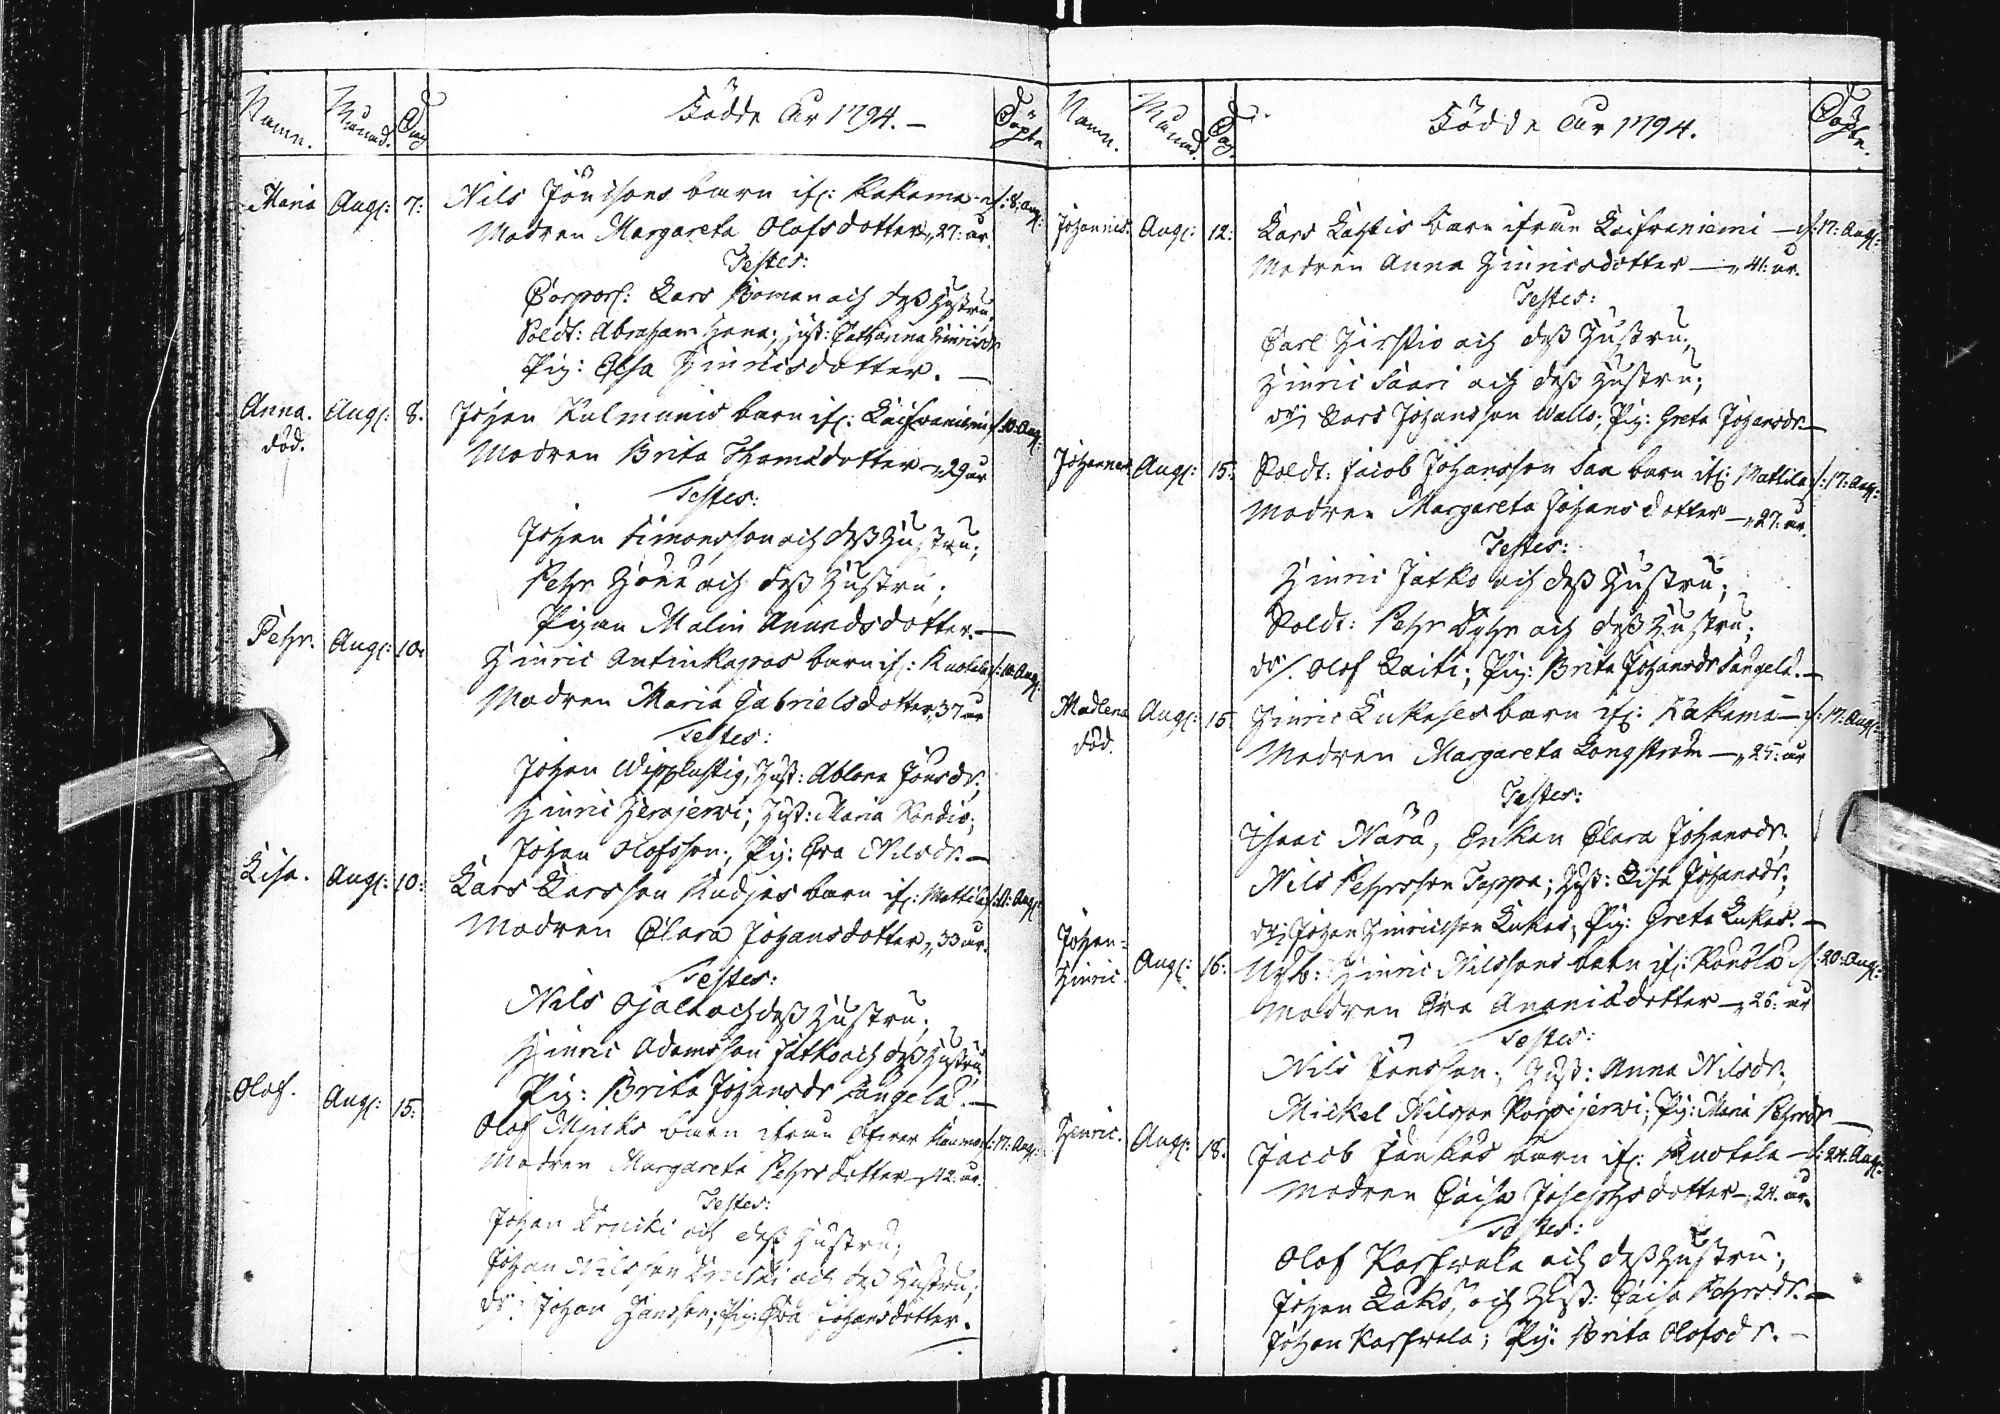 Namn. Månad. Dag Födde År 1794. — Döpte
Maria Aug: 7: Nils Jönssons barn if: Kakama d: 8: Aug:
Modren Margareta Olofsdotter „ 27: år.
Testes:
Corporl: Lars Boman och deß Hustru;
Soldt: Abraham Hane; Hust: Catharina Hinricsdr
Pig: Elsa Hinricsdotter. —
Anna. Aug: 8. Johan Kulmunis barn if: Kaisraniemi d: 10: Aug:
död. Modren Brita Thomædotter „ 29 år
Testes:
Johan Simonsson och deß Hustru;
Pehr och deß Hustru;
Pigan Malin Anundsdotter. —
Pehr. Aug: 10: Hinric Antinkapas barn if: Kuotala d: 10: Aug:
Modren Maria Gabrielsdotter „ 37 år
Testes:
Johan Wippluttig, Hust: Ablona Jönsdr;
Hinric Herajerwi; Hust: Maria
Johan Olofsson; Pig: Eva Nilsdr. —
Lisa. Aug: 10: Lars Larsson Kudjas barn if: Mattila d: 11: Aug:
Modren Clara Johansdotter „ 33 år.
Testes:
Nils Ojala och deß Hustru;
Hinric Adamsson Jatko och deß Hustru
Pig: Brita Johansdr Sangela. —
Olof. Aug: 15: Olof barn ifrån Öfwer d: 17: Aug:
Modren Margareta Pehrsdotter „ 42. år.
Testes:
Johan och deß Hustru;
Johan Nilsson och deß Hustru;
dr: Johan Hansson; Pig: Eva Johansdotter.
Namn. Månad. Dag. Födde År 1794. Döpte.
Johannes. Aug: 12: Lars barn ifrån Kaisraniemi — d: 17: Aug:
Modren Anna Hinricsdotter — „ 41: år.
Testes:
Carl och deß Hustru;
Hinric Saari och deß Hustru;
dr: Lars Johansson Wallo; Pig: Greta Johansdr. —
Johannes Aug: 15: Soldt: Jacob Johansson Saa barn if: Mattila d: 17: Aug:
Modren Margareta Johansdotter — „ 27. år.
Testes:
Hinric Jatko och deß Hustru;
Soldt: Pehr och deß Hustru;
dr: Olof Laiti; Pig: Brita Johansdr Sangela. —
Madlena Aug: 15 Hinric Lukases barn if: Kakama — d: 17: Aug:
död. Modren Margareta Longström — „ 25: år
Testes:
Isaac Nara, Enkan Clara Johansdr;
Nils Pehrsson Tappa; Hust: Lisa Johansdr;
dr: Johan Hinricsson Lukas; Pig: Greta Lukas. —
Johan-
Hinric Aug: 16: Nyb: Hinric Nilssons barn if: d: 20: Aug:
Modren Eva Ananiædotter — „ 26: år
Testes:
Nils Jönsson; Hust: Anna Nilsdr;
Mickel Nilsson Korpijerwi; Pig: Maria Pehrsdr —
Hinric. Aug: 18: Jacob Junkas barn if: Kuotala — d: 24. Aug:
Modren Caisa Josephsdotter — „ 24. år.
Testes:
Olof Karswala och deß Hustru;
Johan och Hust: Caisa Pehrsdr. —
Johan Karswala; Pig: Brita Olofsdr. —